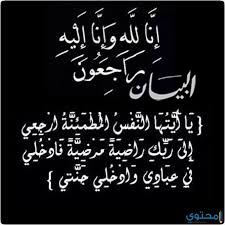 إِنَّا لِلَّهِ وَإِنَّا إِلَيْهِ
رَاجِعُونَ
البيان
{ يَا أَيَّتُهَا النَّفْسُ الْمُطْمَئِنَّةُ ارْجِعِي
إِلَى رَبِّكِ رَاضِيَةً مَرْضِيَّةً فَادْخُلِي
فِي عِبَادِي وَادْخُلِي جَنَّتِي }
محتوى